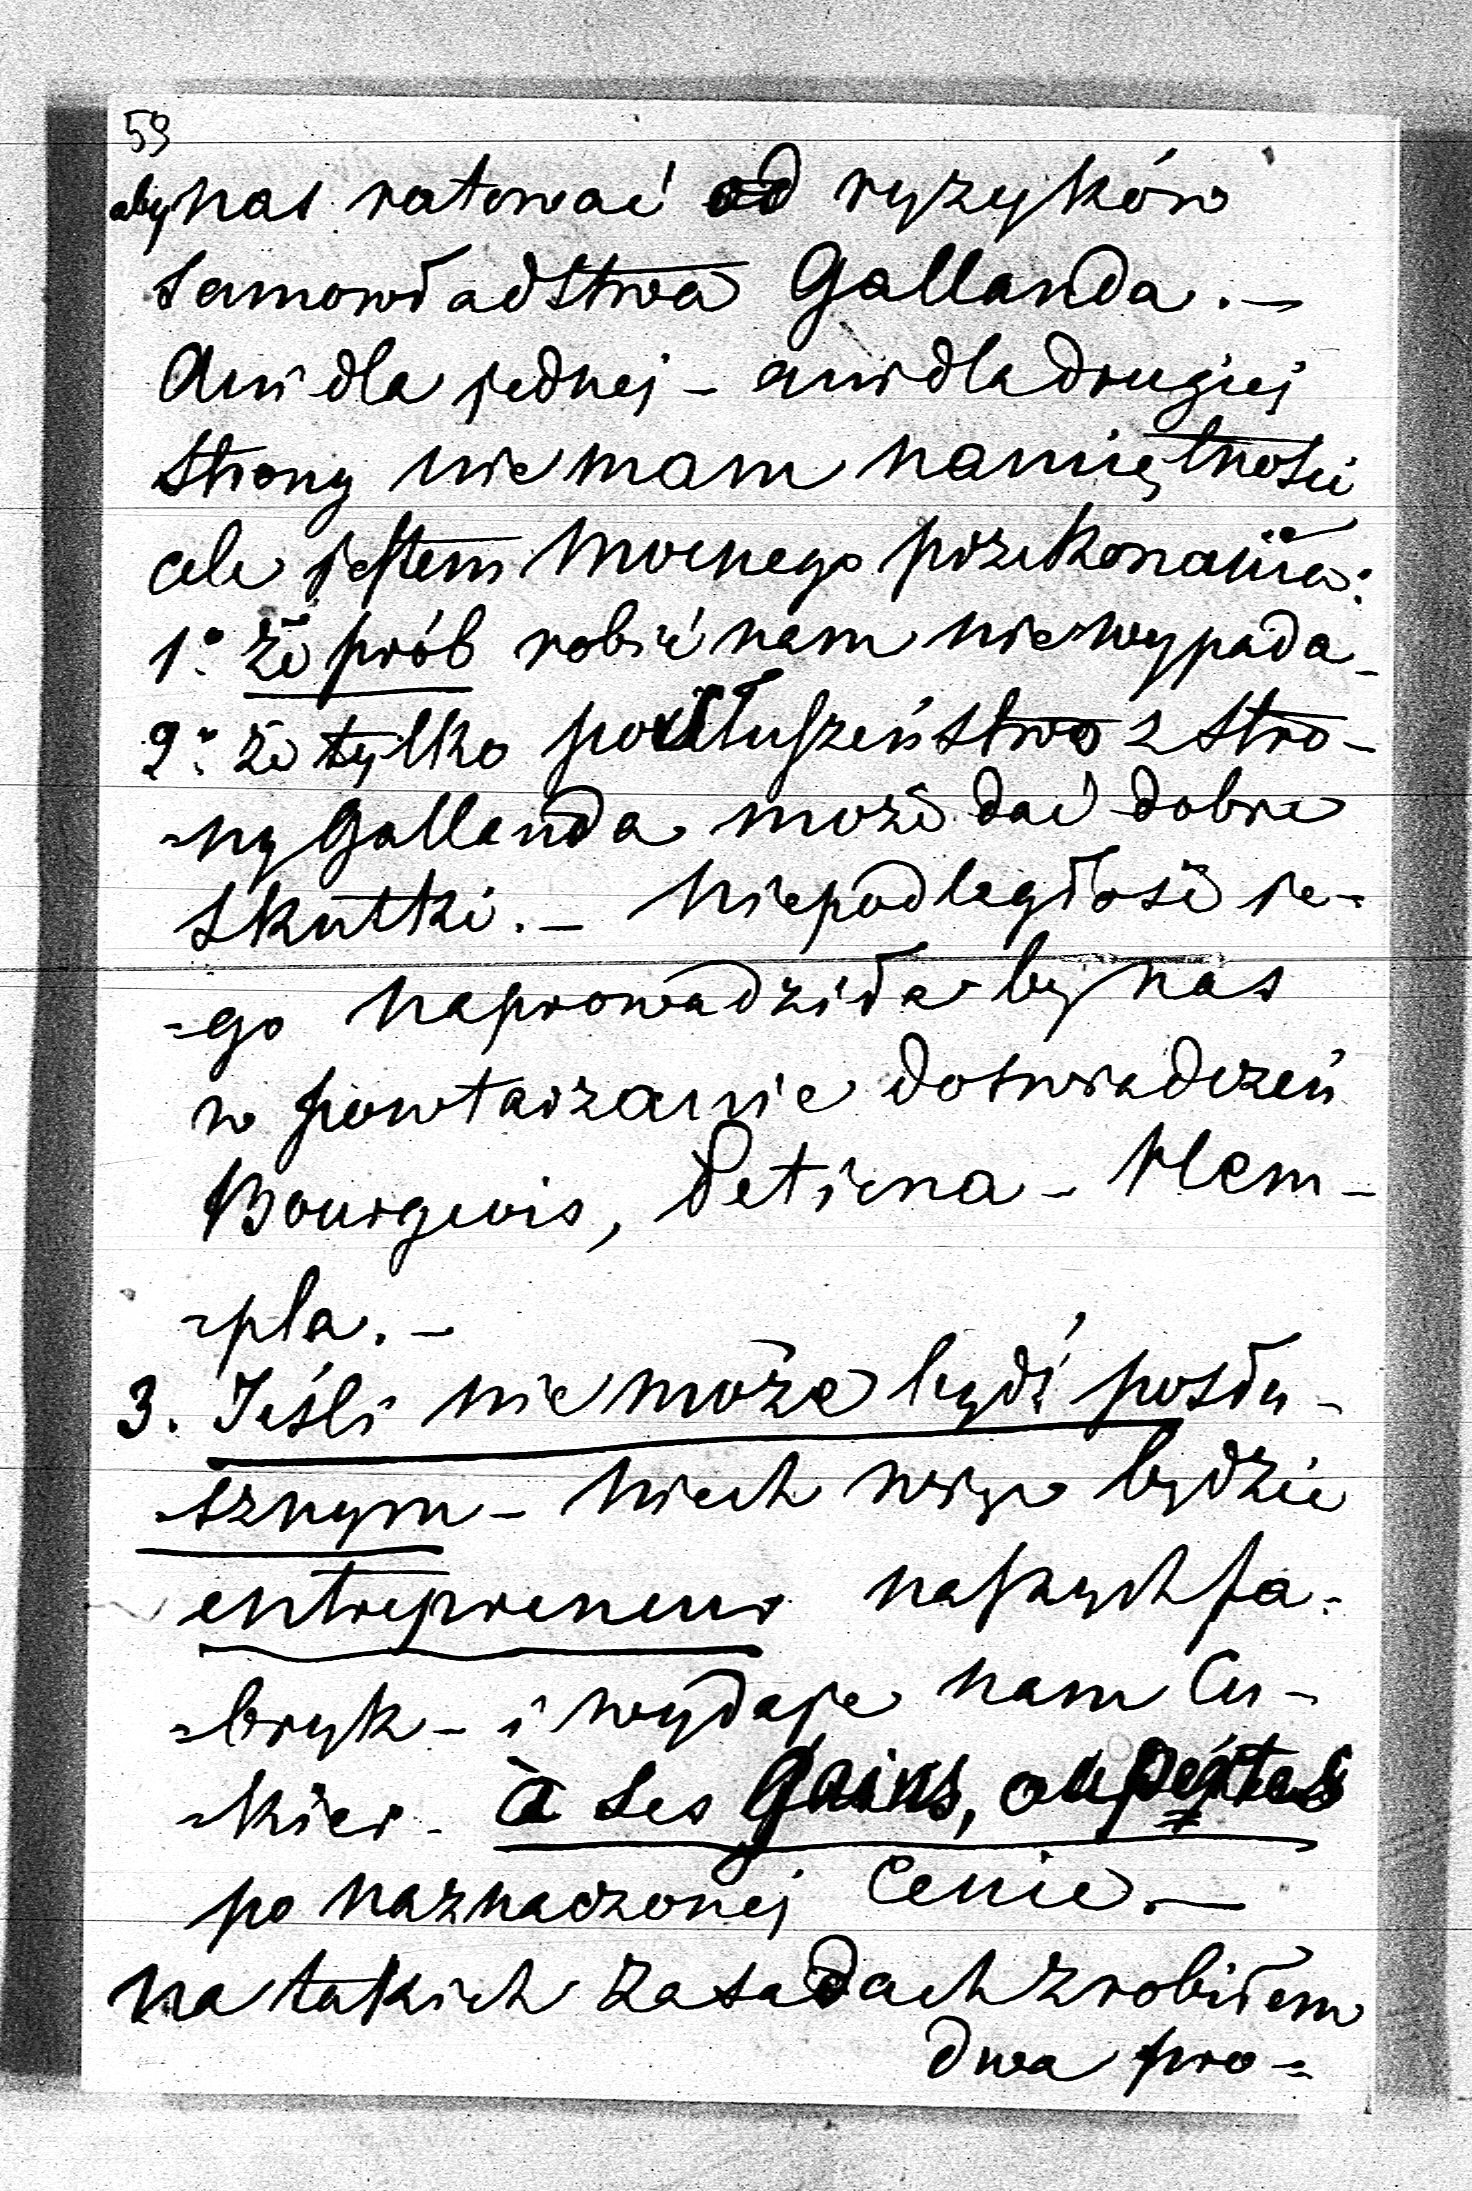 59
aby nas ratować od ryzyków
samowładstwa Gallanda. —
Ani dla jednej – ani dla drugiej
strony nie mam namiętności
ale jestem mocnego przekonania:
1.° że prób robić nam nie wypada –
2.° że tylko posłuszeństwo z stro-
-ny Gallanda może dać dobre
skutki. — Niepodległość je-
-go naprowadziła by nas
w powtarzanie doświadczeń
Bourgeois, Petiena – Hem-
-pla. —
3. Jeśli nie może bydź posłu-
-sznym – niech więc będzie
entrepreneur naszych fa-
-bryk – i wydaje nam Cu-
-kier – à ses gains, ou pértes
po naznaczonej Cenie. —
na takich zasadach zrobiłem
dwa pro-